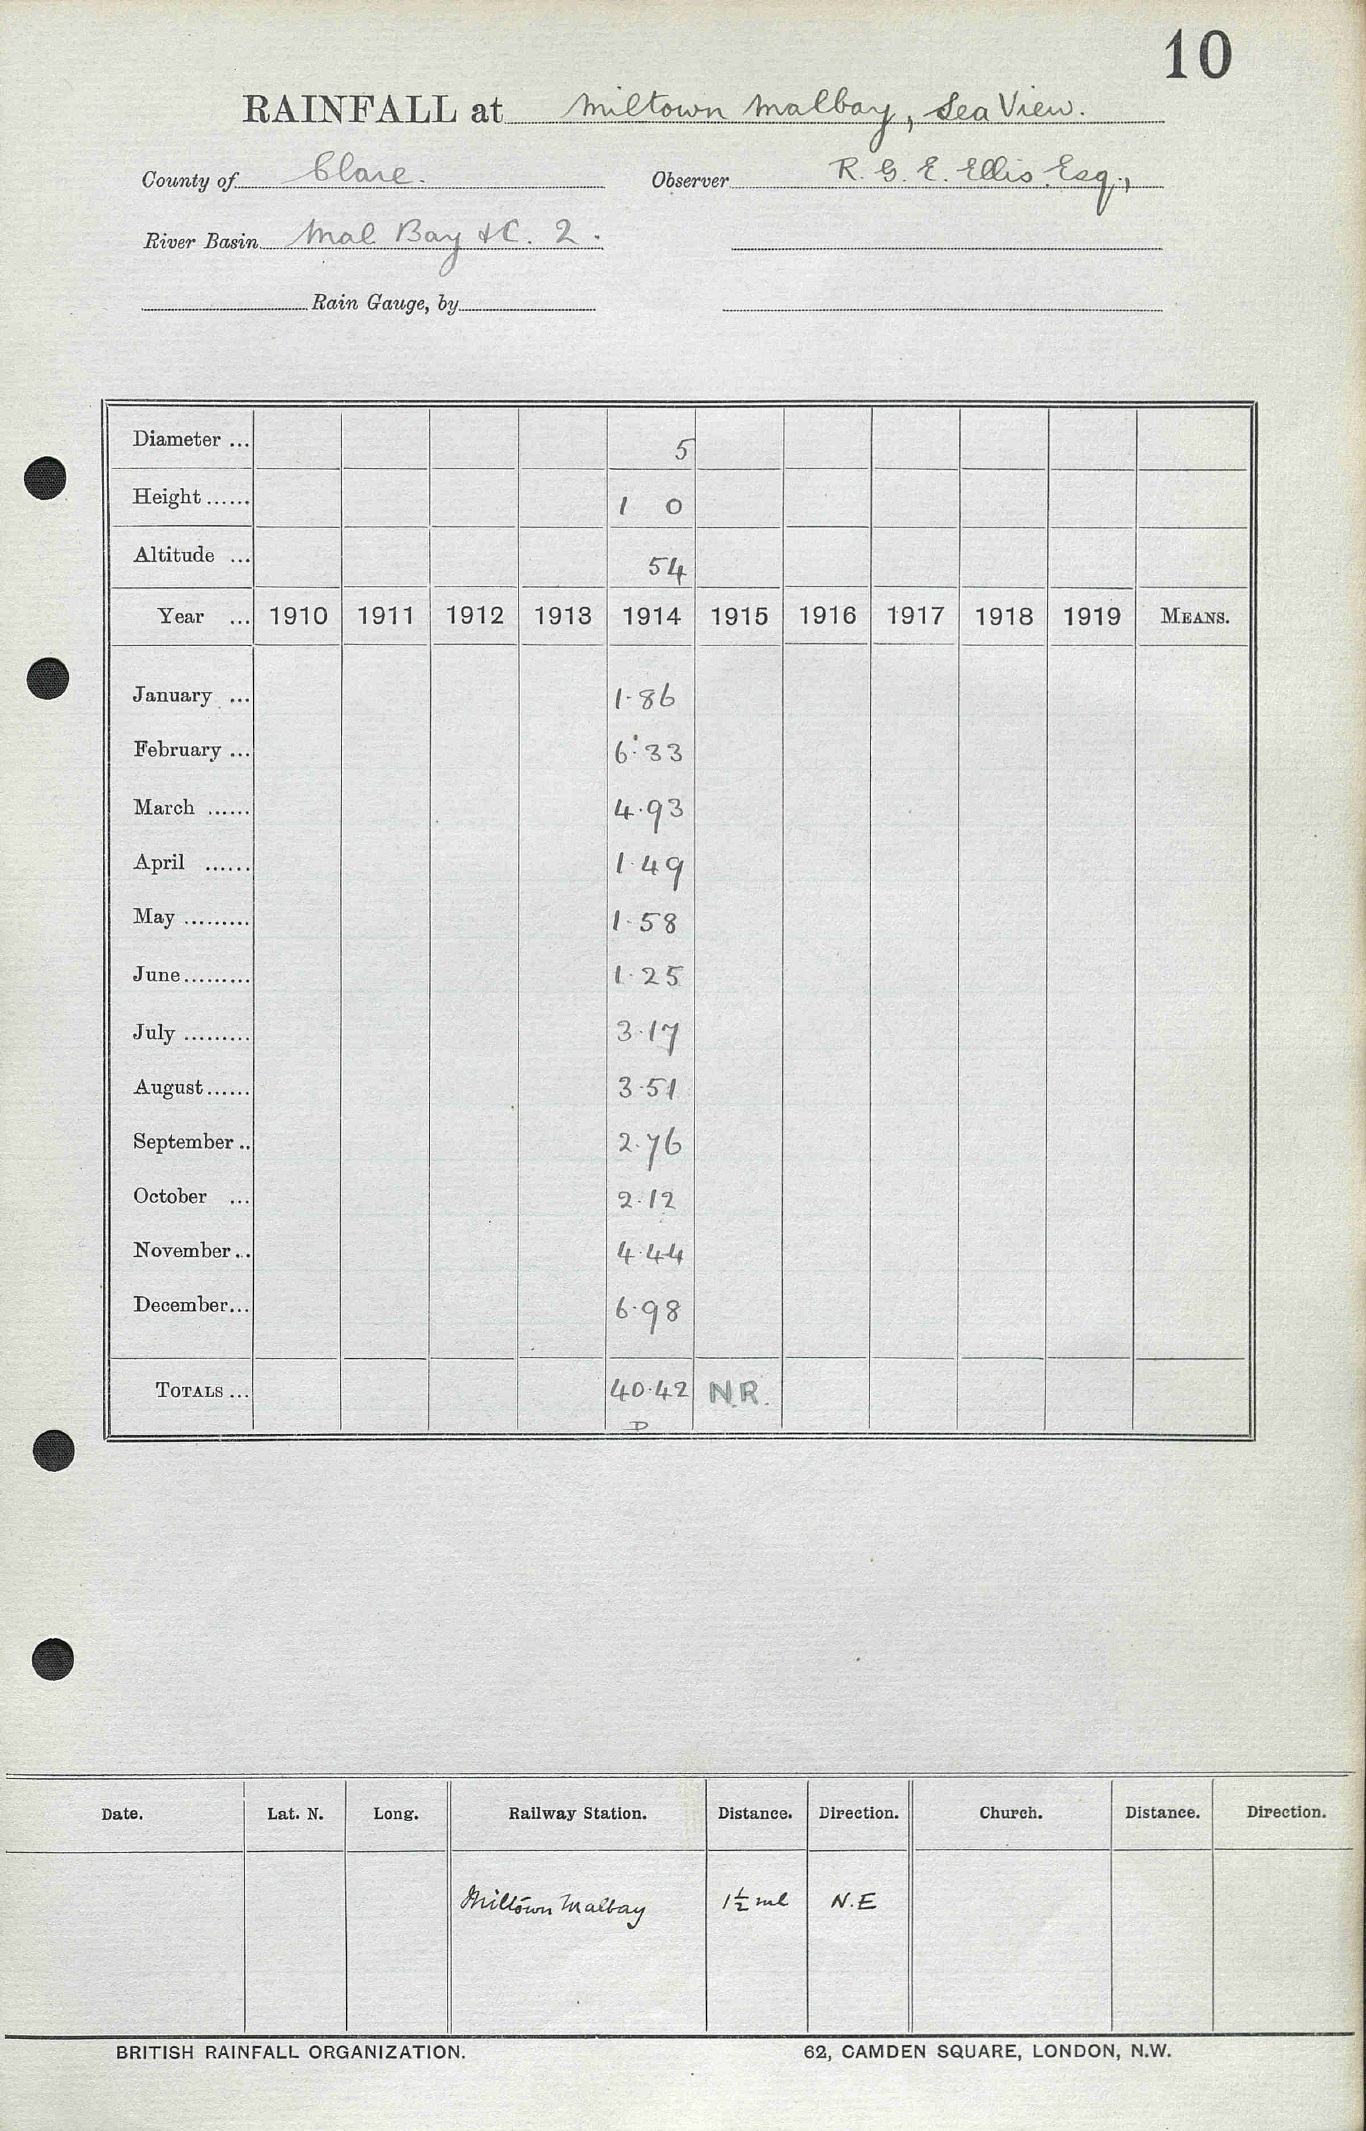 10
RAINFALL at Miltown Malbay, Sea View.
County of Clare. Observer R. G. E. Ellis Esq.,
River Basin Mal Bay &C. 2.
Rain Gauge, by
Diameter ... 5
Height ...... 1 0
Altitude ... 54
Year ... 1910 1911 1912 1913 1914 1915 1916 1917 1918 1919 MEANS.
January ... 1.86
February ... 6.33
March ...... 4.93
April ...... 1.49
May ......... 1.58
June ......... 1.25
July ......... 3.17
August ...... 3.51
September .. 2.76
October ... 2.12
November ... 4.44
December ... 6.98
TOTALS ... 40.42 N.R.
D
Date. Lat. N. Long. Railway Station. Distance. Direction. Church. Distance. Direction.
Miltown Malbay 1½ ml N.E
BRITISH RAINFALL ORGANIZATION. 62, CAMDEN SQUARE, LONDON, N.W.